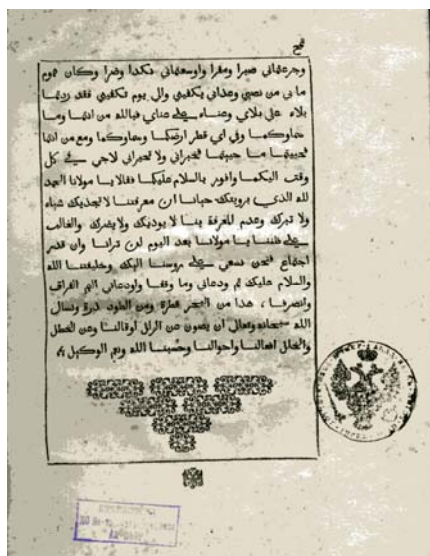 وجرعتماني صبرا ومقرا واوسعتماني نكدا وضرا وكان هموم
ما بي من نصبي وعذابي يكفيني والى يوم تكفيني فقد زدتما
بلاء على بلاي وعناء على عناي فبالله من انتما وما
حماوكما وفي اي قطر ارضكما وسماوكما ومع من انتما
وقت اليكما وافوز بالسلام عليكما فقالا يا مولانا الحمد
لله الذي برويتك حيانا ان معرفتنا لا تجديك شياء
ولا تبرك وعدم المعرفة بنا لا يوذيك ولا يضرك والغالب
على ظننا يا مولانا بعد اليوم لن ترانا وان قدر
اجتماع فنحن نسعى على روسنا اليك وخليفتنا الله
والسلام عليك ثم ودعاني وما وقفا واودعاني الم الفراق
وانصرفا ، هذا من البحر قطرة ومن الطود ذرة ونسال
الله سبحانه وتعالى ان يصون عن الزلل اوقالنا وعن الخطل
والخلل افعالنا واحوالنا وحسبنا الله ونعم الوكيل